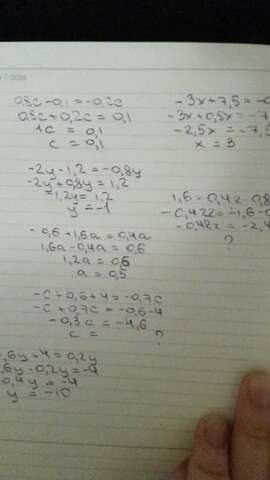 0,8c-0,1=-0,2c
0,8c+0,2c=0,1
1c = 0,1
c = 0,1
-2y-1,2=-0,8y
-2y+0,8y=1,2
-1,2y= 1,2
y = -1
-0,6+1,6a=0,4a
1,6a-0,4a=0,6
1,2a=0,6
a=0,5
-c+0,6+4=-0,7c
-c+0,7c=-0,6-4
-0,3c=-4,6
c = ?
,6y+4=0,2y
,6y-0,2y=-4
0,4y=-4
y=-10
-3x+7,5=-0
-3x+0,5x=-7
-2,5x=-7,
x=3
1,6=0,4z-0,8
-0,42z=-1,6-0
-0,42z=-2,4
?